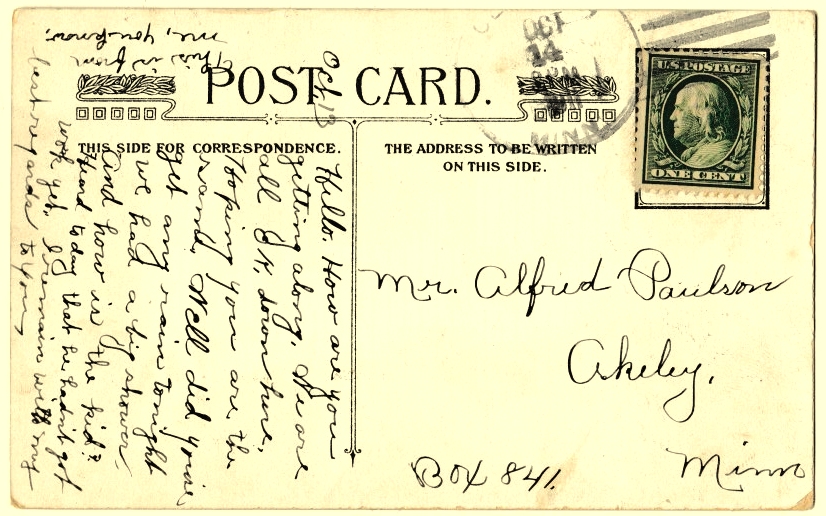 POST CARD.
THIS SIDE FOR CORRESPONDENCE.
THE ADDRESS TO BE WRITTEN
ON THIS SIDE.
OCT
14
MINN
U.S. POSTAGE
ONE CENT
Mr. Alfred Paulson
Akeley,
Minn
Box 841.
Oct. 13
Hello. How are you
getting along. We are
all O.K. down here,
Hoping you are the
same. Well did you
get any rain tonight
we had a big shower,
And how is the kid?
Heard today that he hadn't got
work yet. I remain with my
best regards to you,
This is from
me, you know.